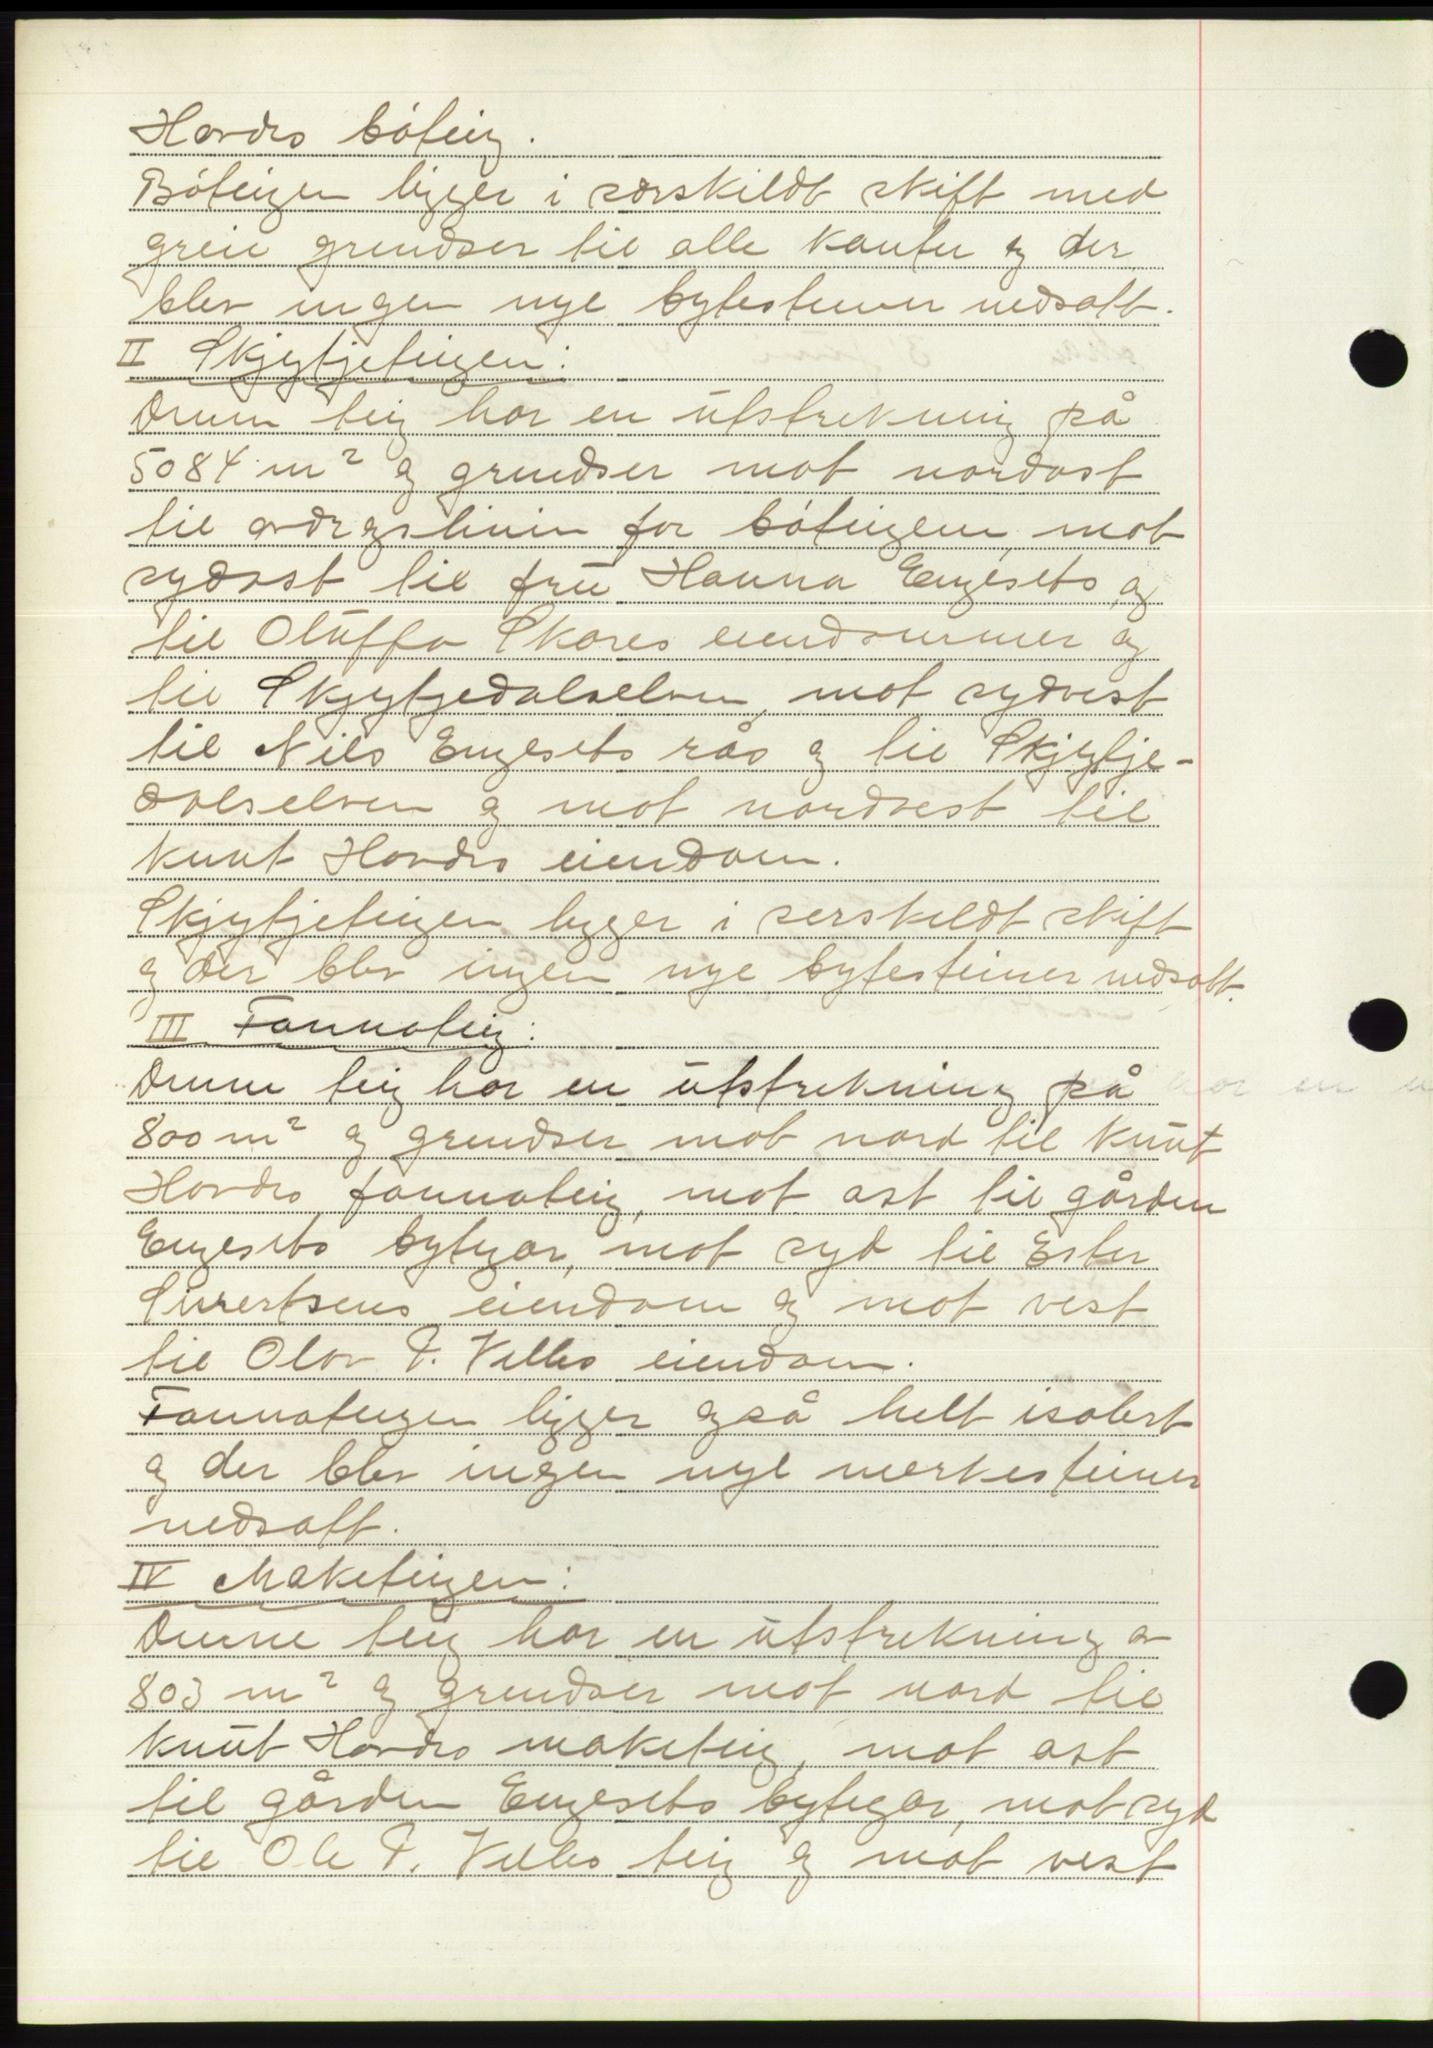 Hovdes bøteig.
Bøteigen ligger i særskildt skift med
greie grendser til alle kanter og der
blev ingen nye bytesteiner nedsatt.
II Skjytjeteigen:
Denne teig har en utstrekning på
5084 m² og grendser mot nordost
til avdragslinien for bøteigene, mot
sydost til fru Hanna Engesets og
til Oluffa Skares eiendommer og
til Skjytjedalselven, mot sydvest
til Nils Engesets rås og til Skjytje-
dalselven og mot nordvest til
Knut Hovdes eiendom.
Skjytjeteigen ligger i serskildt skift
og der blev ingen nye bytesteiner nedsatt.
III Fannateig:
Denne teig har en utstrekning på
800 m² og grendser mot nord til Knut
Hovdes fannateig, mot ost til gården
Engesets bytegar, mot syd til Ester
Sivertsens eiendom og mot vest
til Olav P. Velles eiendom.
Fannateigen ligger også helt isolert
og der blev ingen nye merkesteiner
nedsatt.
IV Maketeigen:
Denne teig har en utstrekning av
803 m² og grendser mot nord til
Knut Hovdes maketeig, mot ost
til gården Engesets bytegar, mot syd
til Ole P. Velles teig og mot vest